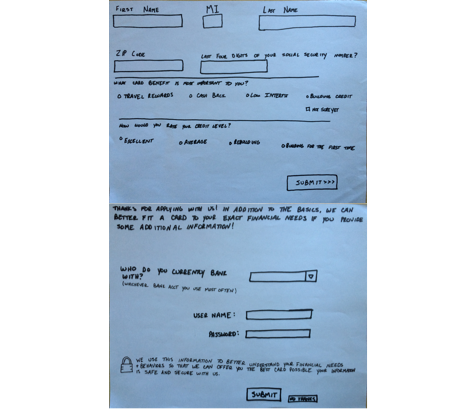 First Name MI Last Name
Zip Code Last Four Digits of your social security number?
What card benefit is most important to you?
Travel Rewards Cash Back Low Interest Building Credit
Not sure yet
How would you rate your credit level?
Excellent Average Rebuilding Building for the first time
Submit >>>
Thanks for applying with us! In addition to the basics, we can
better fit a card to your exact financial needs if you provide
some additional information!
Who do you currently bank
with?
(whichever bank acct you use most often)
User Name:
Password:
We use this information to better understand your financial needs
+ behaviors so that we can offer you the best card possible. Your information
is safe and secure with us.
Submit No Thanks